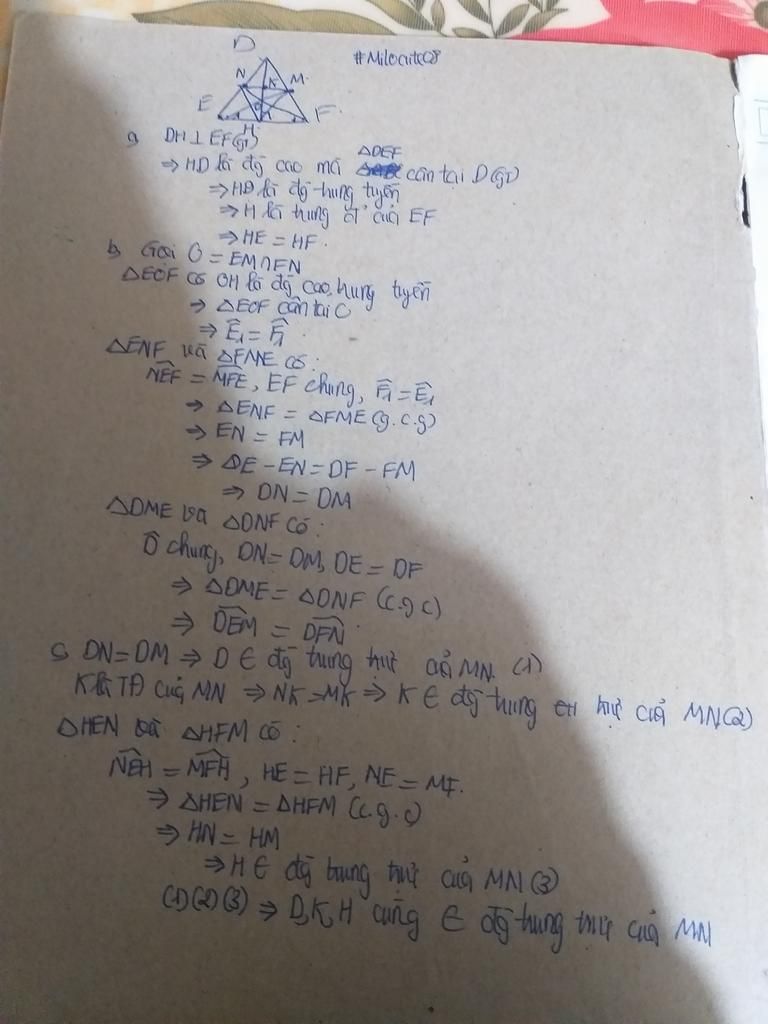 #Milocite08
D
N K M
E H F
a, DH ⊥ EF(gt)
⇒ HD là đg cao mà ΔDEF cân tại D(gt)
⇒ HD là đg trung tuyến
⇒ H là trung đ' của EF
⇒ HE = HF.
b, Gọi O = EM∩FN
ΔEOF có OH là đg cao, trung tuyến
⇒ ΔEOF cân tại O
⇒ Ê₁ = F̂₁
ΔENF và ΔFME có:
N̂EF = M̂FE, EF chung, F̂₁ = Ê₁
⇒ ΔENF = ΔFME (g.c.g)
⇒ EN = FM
⇒ DE - EN = DF - FM
⇒ DN = DM
ΔDME và ΔDNF có:
D̂ chung, DN = DM, DE = DF
⇒ ΔDME = ΔDNF (c.g.c)
⇒ D̂EM = D̂FN
c, DN = DM ⇒ D ∈ đg trung trực của MN. (1)
K là TĐ của MN ⇒ NK = MK ⇒ K ∈ đg trung trực của MN(2)
ΔHEN và ΔHFM có:
N̂EH = M̂FH, HE = HF, NE = MF.
⇒ ΔHEN = ΔHFM (c.g.c)
⇒ HN = HM
⇒ H ∈ đg trung trực của MN (3)
(1)(2)(3) ⇒ D,K,H cùng ∈ đg trung trực của MN